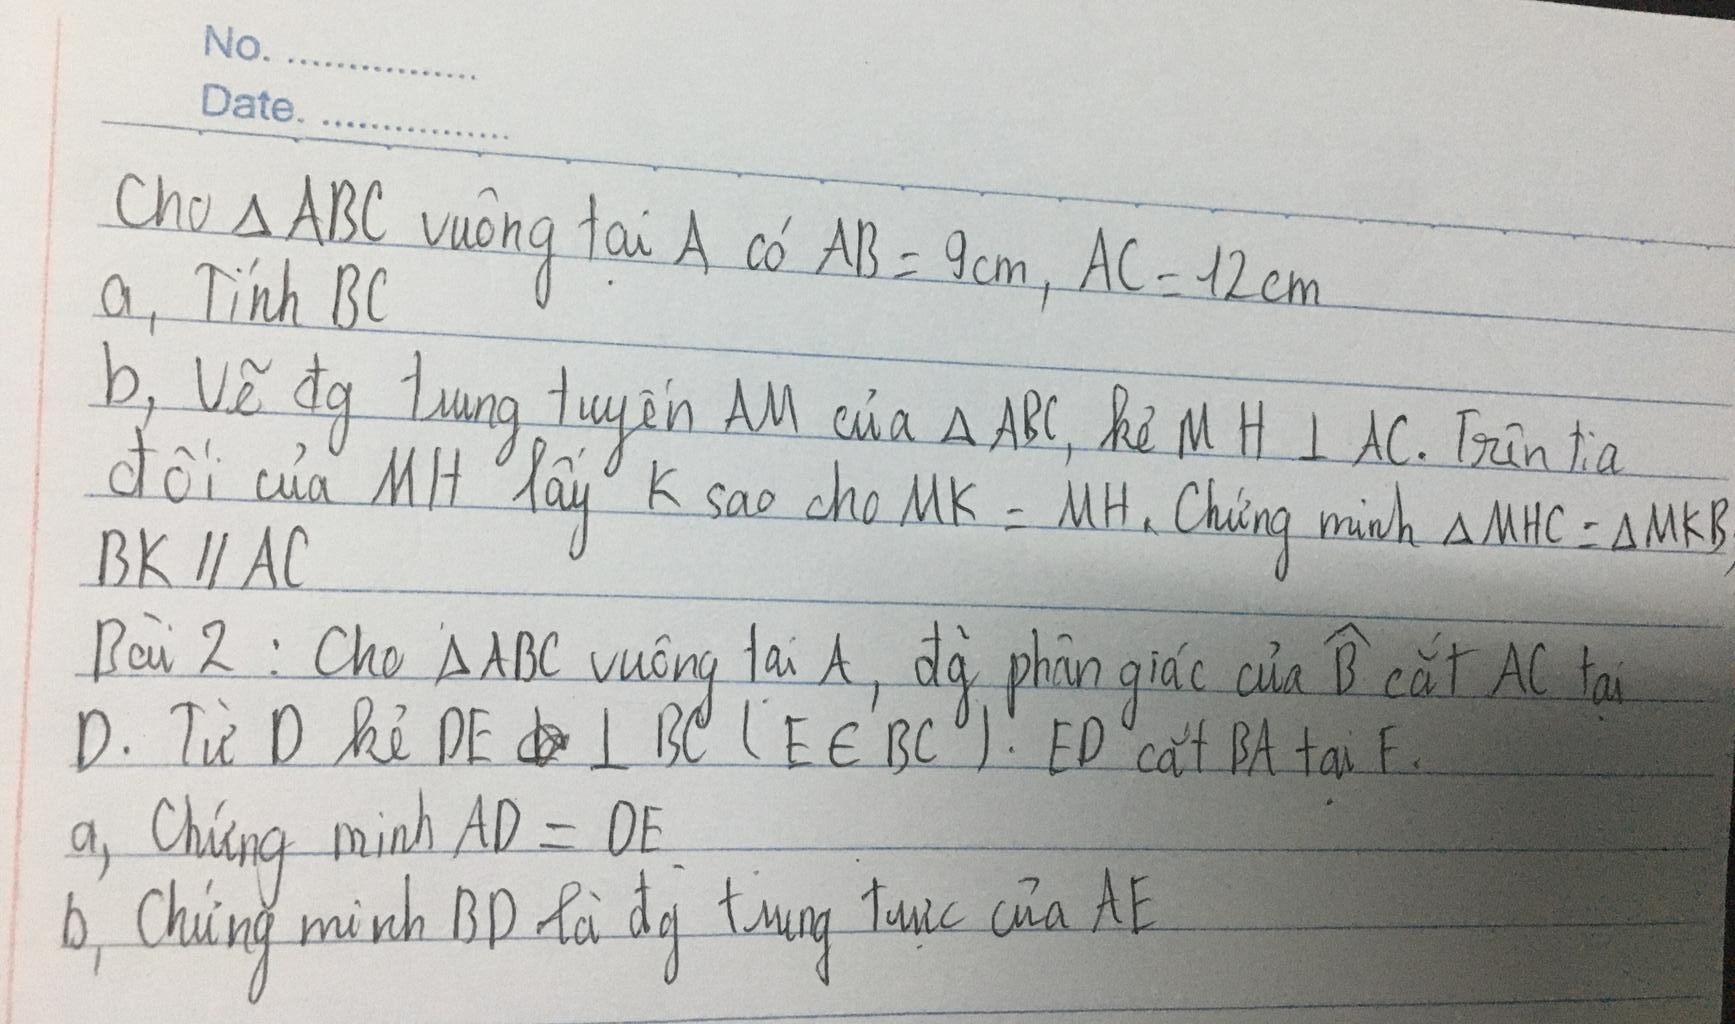 No. ................
Date. ................
Cho △ ABC vuông tại A có AB = 9cm, AC = 12cm
a, Tính BC
b, Vẽ đg trung tuyến AM của △ ABC, kẻ MH ⊥ AC. Trên tia
đối của MH lấy K sao cho MK = MH. Chứng minh △ MHC = △ MKB,
BK // AC
Bài 2 : Cho △ ABC vuông tại A, đg phân giác của B̂ cắt AC tại
D. Từ D kẻ DE ⊥ BC ( E ∈ BC ). ED cắt BA tại F.
a, Chứng minh AD = DE
b, Chứng minh BD là đg trung trực của AE